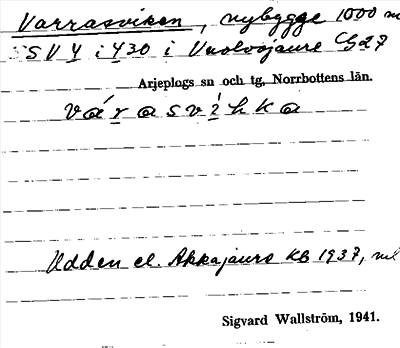 Varrasviken, nybygge 1000 m
SV Y i Y30 i Vuolvojaure Gd27
Arjeplogs sn och tg, Norrbottens län.
várasvihka
Udden el. Akkajaure KB 1937, ml
Sigvard Wallström, 1941.